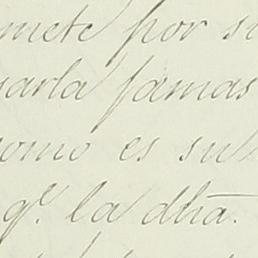 mete por su
uarla jamas
como es su
q.e la dha.